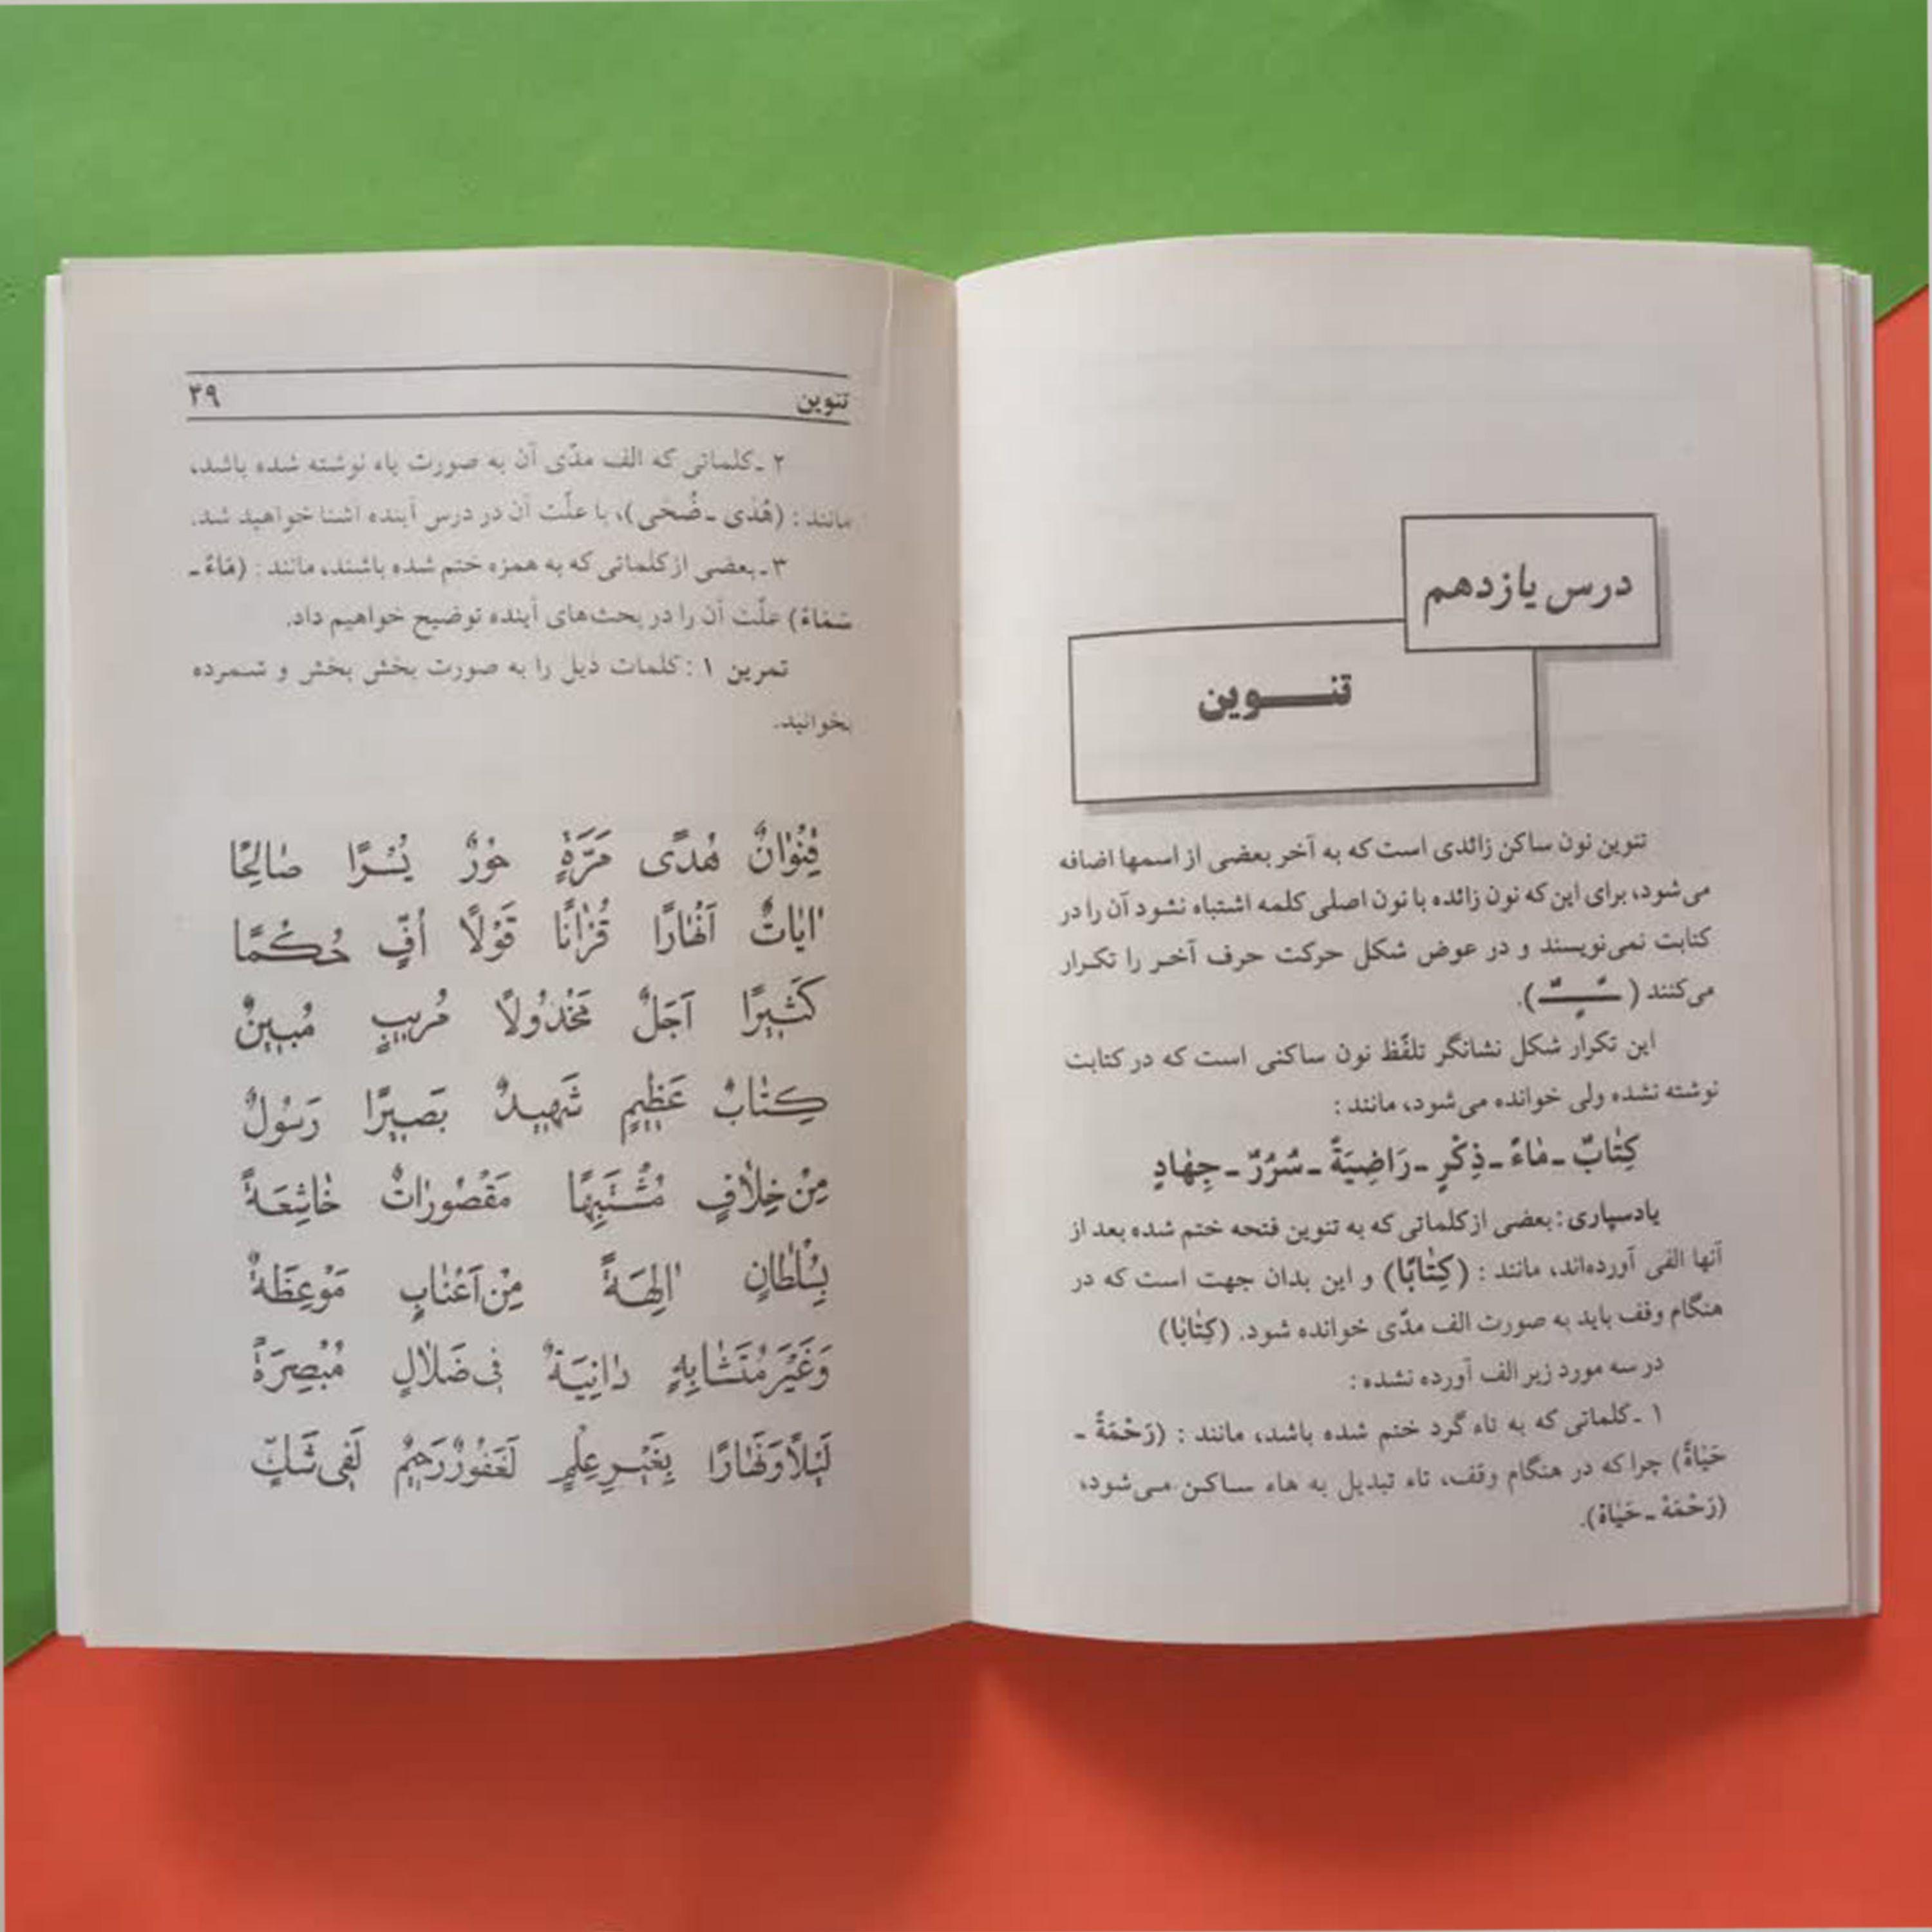 درس یازدهم
تنـــوین
تنوین نون ساکن زائدی است که به آخر بعضی از اسمها اضافه
می‌شود، برای این که نون زائده با نون اصلی کلمه اشتباه نشود آن را در
کتابت نمی‌نویسند و در عوض شکل حرکت حرف آخـر را تکـرار
می‌کنند (ـًـٍـٌ).
این تکرار شکل نشانگر تلفّظ نون ساکنی است که در کتابت
نوشته نشده ولی خوانده می‌شود، مانند :
کِتٰابٌ ـ مٰاءً ـ ذِکْرٍ ـ رَاضِیَةً ـ سُرُرٌ ـ جِهٰادٍ
یادسپاری : بعضی از کلماتی که به تنوین فتحه ختم شده بعد از
آنها الفی آورده‌اند، مانند : (کِتٰابًا) و این بدان جهت است که در
هنگام وقف باید به صورت الف مدّی خوانده شود. (کِتٰابٰا)
در سه مورد زیر الف آورده نشده :
۱ ـ کلماتی که به تاء گرد ختم شده باشد، مانند : (رَحْمَةً ـ
حَیٰاةً) چرا که در هنگام وقف، تاء تبدیل به هاء ساکـن مـی‌شود،
(رَحْمَهْ ـ حَیٰاهْ).
تنوین ۳۹
۲ ـ کلماتی که الف مدّی آن به صورت یاء نوشته شده باشد،
مانند : (هُدًی ـ ضُحًی)، با علّت آن در درس آینده آشنا خواهید شد.
۳ ـ بعضی از کلماتی که به همزه ختم شده باشند، مانند : (مٰاءً ـ
سَمٰاءً) علّت آن را در بحث‌های آینده توضیح خواهیم داد.
تمرین ۱ : کلمات ذیل را به صورت بخش بخش و شـمرده
بخوانید.
قِنْوٰانٌ هُدًی مَرَّةٍ حُورٌ یُسْرًا صٰالِحًا
اٰیٰاتٌ اَنْهٰارًا قُرْاٰنًا قَوْلًا اُفٍّ حُکْمًا
کَثیرًا اَجَلٌ مَخْذُولًا مُریبٍ مُبینٌ
کِتٰابٌ عَظیمٍ شَهیدٌ بَصیرًا رَسُولٌ
مِنْ خِلٰافٍ مُشْتَبِهًا مَقْصُورٰاتٌ خٰاشِعَةً
بِسُلْطٰانٍ اٰلِهَةً مِنْ اَعْنٰابٍ مَوْعِظَةٌ
وَغَیْرَ مُتَشٰابِهٍ دٰانِیَةٌ فی ضَلٰالٍ مُبْصِرَةً
لَیْلًا وَنَهٰارًا بِغَیْرِ عِلْمٍ لَغَفُورٌ رَحیمٌ لَفی شَکٍّ